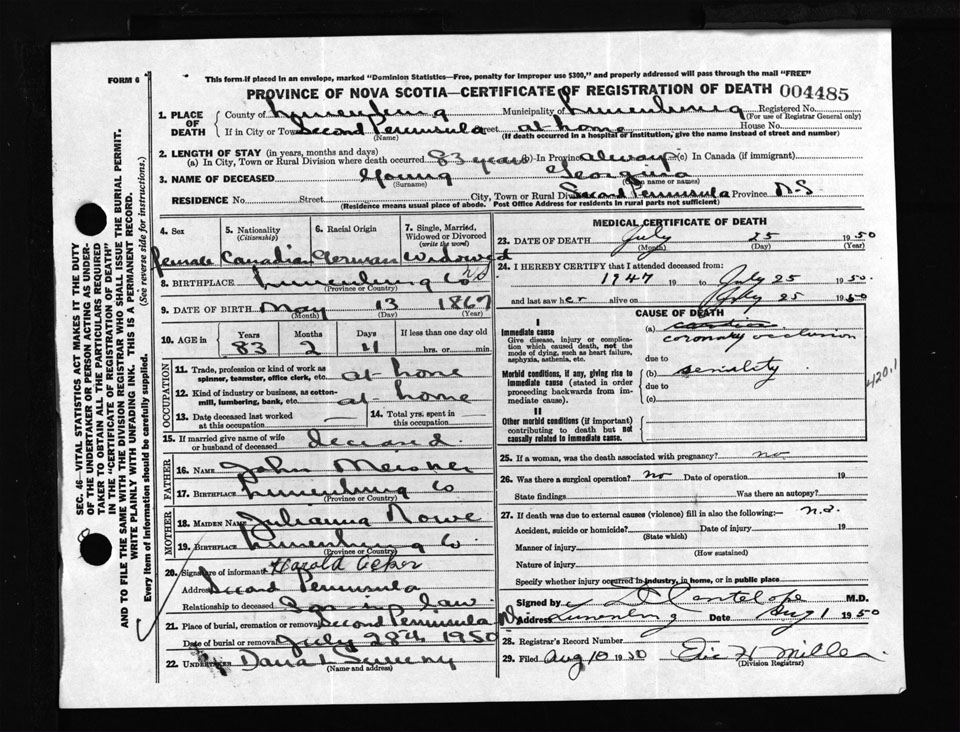 FORM 6
This form if placed in an envelope, marked "Dominion Statistics—Free, penalty for improper use $300," and properly addressed will pass through the mail "FREE"
PROVINCE OF NOVA SCOTIA—CERTIFICATE OF REGISTRATION OF DEATH 004485
1. PLACE OF DEATH
County of Lunenburg Municipality of Lunenburg Registered No.
(For use of Registrar General only)
If in City or Town Second Peninsula Street at home House No.
(Name) (If death occurred in a hospital or institution, give the name instead of street and number)
2. LENGTH OF STAY (in years, months and days)
(a) In City, Town or Rural Division where death occurred 83 years (b) In Province always (c) In Canada (if immigrant)
3. NAME OF DECEASED Young Georgina
(Surname) (Given name or names)
RESIDENCE No. Street City, Town or Rural Div. Second Peninsula Province NS
(Residence means usual place of abode. Post Office Address for residents in rural parts not sufficient)
4. Sex 5. Nationality (Citizenship) 6. Racial Origin 7. Single, Married, Widowed or Divorced (write the word)
Female Canadian German Widowed
8. BIRTHPLACE Lunenburg Co NS
(Province or Country)
9. DATE OF BIRTH May 13 1867
(Month) (Day) (Year)
10. AGE in Years Months Days If less than one day old
83 2 11 hrs. or min.
OCCUPATION
11. Trade, profession or kind of work as spinner, teamster, office clerk, etc. at home
12. Kind of industry or business, as cotton-mill, lumbering, bank, etc. at home
13. Date deceased last worked at this occupation 14. Total yrs. spent in this occupation
15. If married give name of wife or husband of deceased deceased
FATHER
16. NAME John Meisner
17. BIRTHPLACE Lunenburg Co
(Province or Country)
MOTHER
18. MAIDEN NAME Julianna Rowe
19. BIRTHPLACE Lunenburg Co
(Province or Country)
20. Signature of informant Harold
Address Second Peninsula
Relationship to deceased Son in law
21. Place of burial, cremation or removal Second Peninsula
Date of burial or removal July 28th 1950
22. UNDERTAKER Dana Sweeny
(Name and address)
MEDICAL CERTIFICATE OF DEATH
23. DATE OF DEATH July 25 1950
(Month) (Day) (Year)
24. I HEREBY CERTIFY that I attended deceased from:
1947 19 to July 25 1950
and last saw her alive on July 25 1950
CAUSE OF DEATH
I
Immediate cause
Give disease, injury or complication which caused death, not the mode of dying, such as heart failure, asphyxia, asthenia, etc.
(a) coronary occlusion
due to
Morbid conditions, if any, giving rise to immediate cause (stated in order proceeding backwards from immediate cause).
(b) senility
due to
(c)
420.1
II
Other morbid conditions (if important) contributing to death but not causally related to immediate cause.
25. If a woman, was the death associated with pregnancy? no
26. Was there a surgical operation? no Date of operation 19
State findings Was there an autopsy?
27. If death was due to external causes (violence) fill in also the following:— n.a.
Accident, suicide or homicide? Date of injury 19
(State which)
Manner of injury
(How sustained)
Nature of injury
Specify whether injury occurred in industry, in home, or in public place
Signed by Cantelope M.D.
Address Lunenburg Date Aug 1 1950
28. Registrar's Record Number
29. Filed Aug 10 1950 Eric H Miller
(Division Registrar)
SEC. 46—VITAL STATISTICS ACT MAKES IT THE DUTY
OF THE UNDERTAKER OR PERSON ACTING AS UNDERTAKER TO OBTAIN ALL THE PARTICULARS REQUIRED
IN THE "CERTIFICATE OF REGISTRATION OF DEATH"
AND TO FILE THE SAME WITH THE DIVISION REGISTRAR WHO SHALL ISSUE THE BURIAL PERMIT.
WRITE PLAINLY WITH UNFADING INK. THIS IS A PERMANENT RECORD.
Every item of information should be carefully supplied. (See reverse side for instructions.)